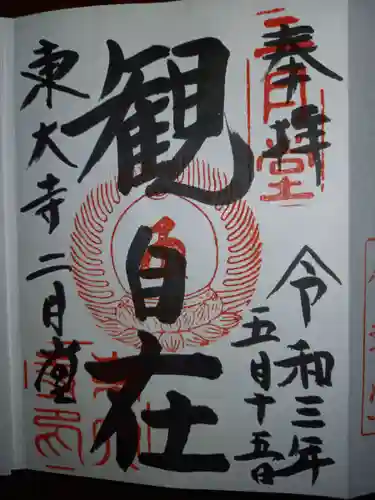 奉拝
二月堂
令和三年
五月十五日
観自在
東大寺二月堂